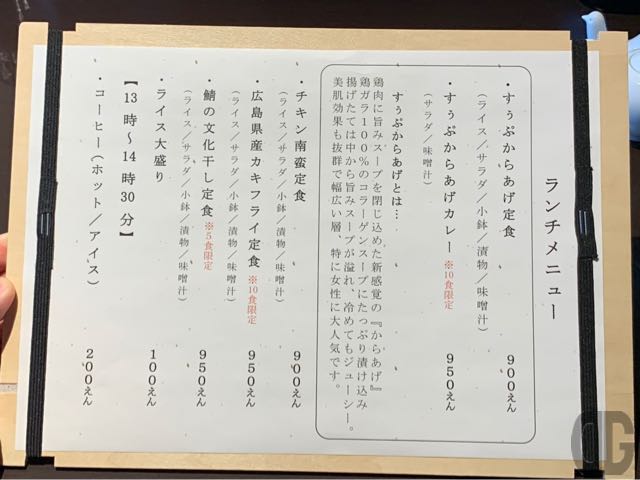 ランチメニュー
・すぅぷからあげ定食 900えん
(ライス/サラダ/小鉢/漬物/味噌汁)
・すぅぷからあげカレー ※10食限定 950えん
(サラダ/味噌汁)
すぅぷからあげとは…
鶏肉に旨みスープを閉じ込めた新感覚の『からあげ』
鶏ガラ100％のコラーゲンスープにたっぷり漬け込み
揚げたては中から旨みスープが溢れ、冷めてもジューシー。
美肌効果も抜群で幅広い層、特に女性に大人気です。
・チキン南蛮定食 900えん
(ライス/サラダ/小鉢/漬物/味噌汁)
・広島県産カキフライ定食 ※10食限定 950えん
(ライス/サラダ/小鉢/漬物/味噌汁)
・鯖の文化干し定食 ※5食限定 950えん
(ライス/サラダ/小鉢/漬物/味噌汁)
・ライス大盛り 100えん
【13時～14時30分】
・コーヒー(ホット/アイス) 200えん